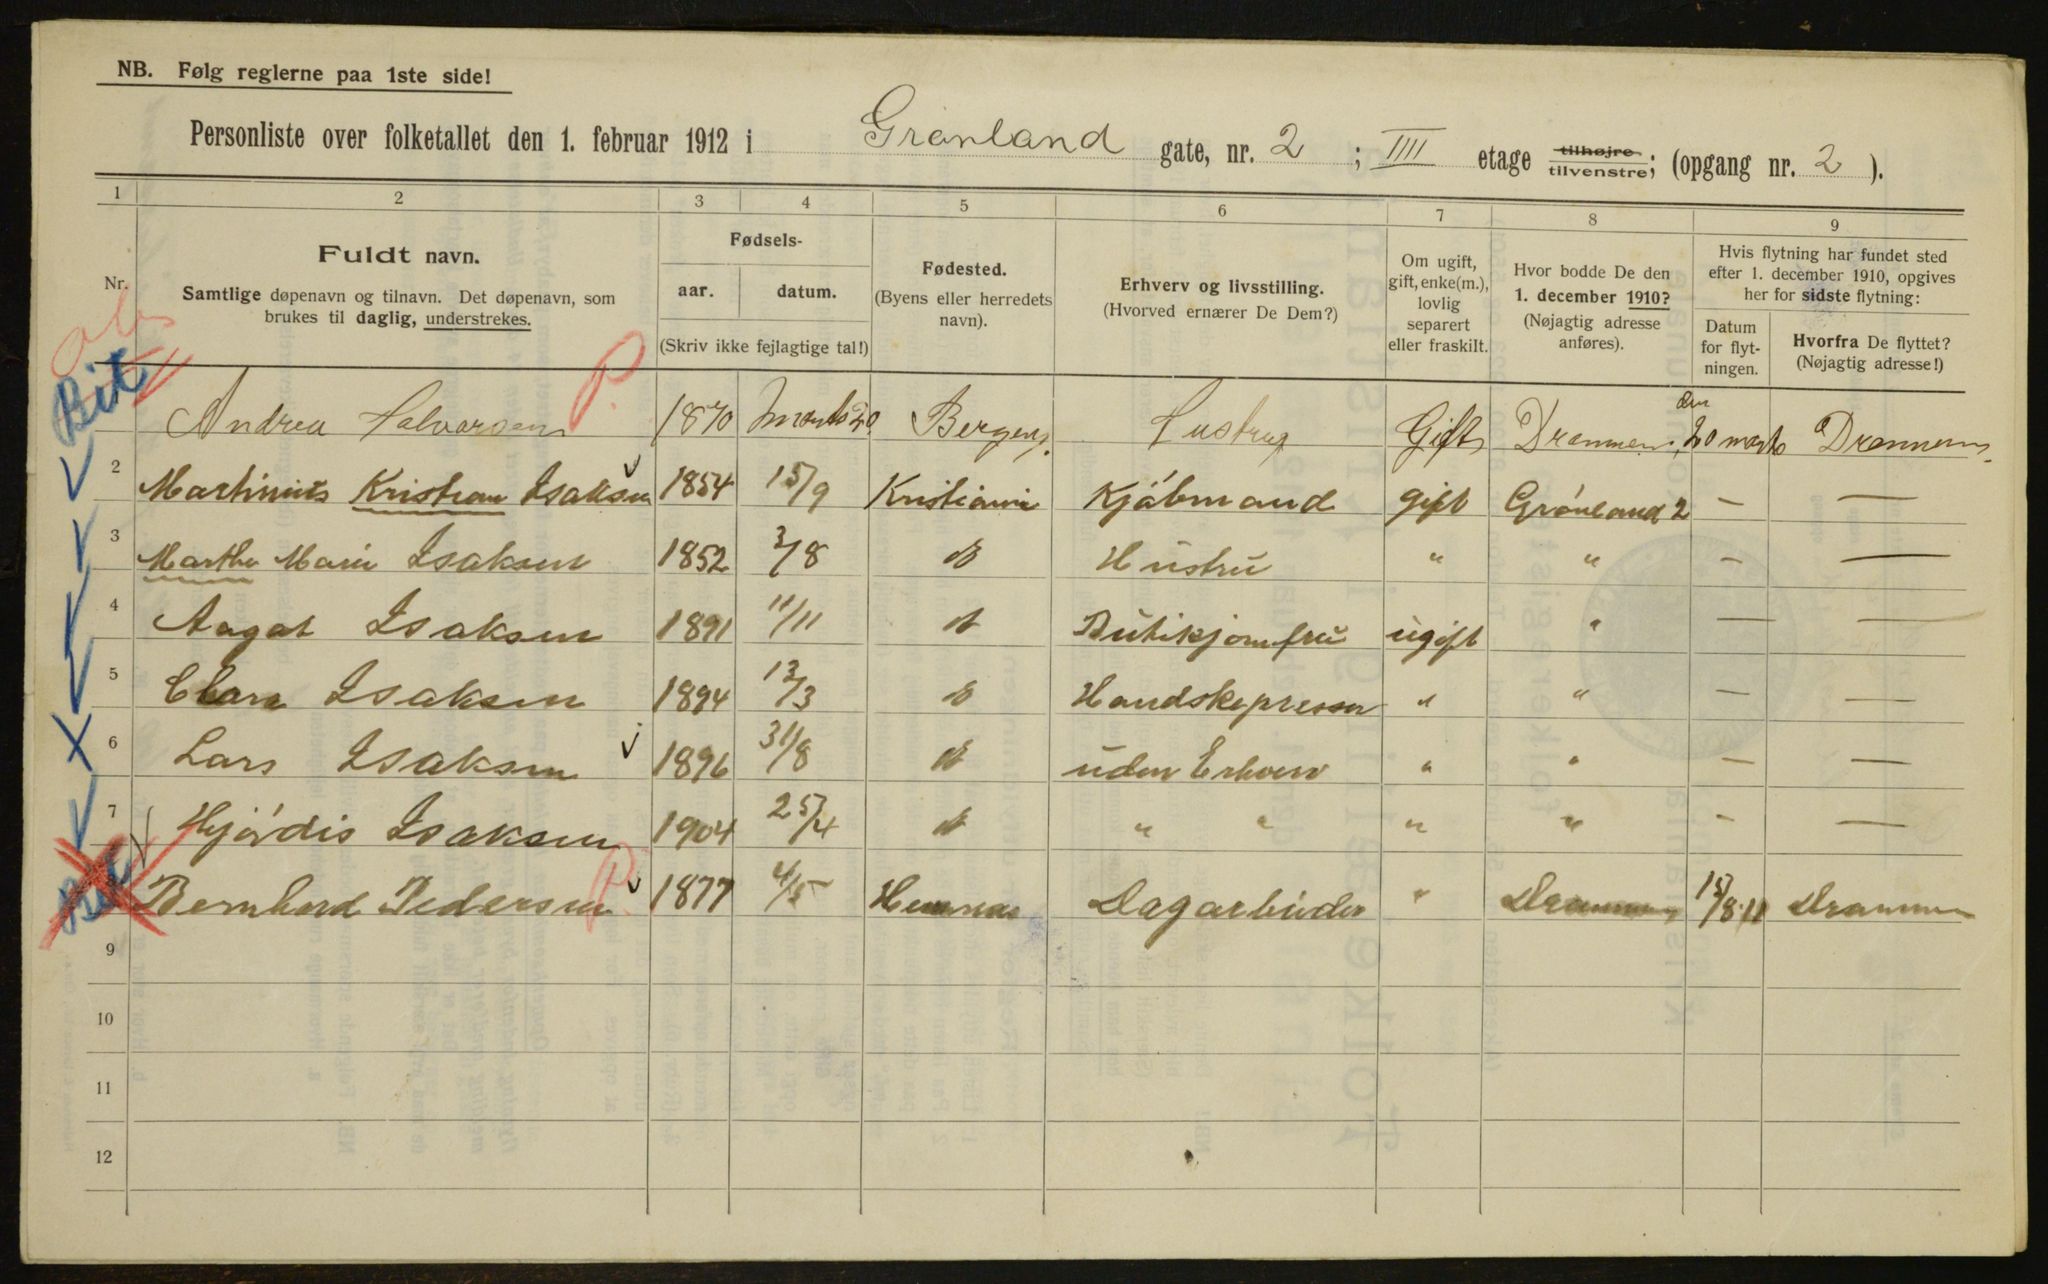 NB. Følg reglerne paa 1ste side!
Personliste over folketallet den 1. februar 1912 i Grønland gate, nr. 2 ; IIII etage tilhøjre tilvenstre; (opgang nr. 2 ).
1 2 3 4 5 6 7 8 9
Nr.
Fuldt navn.
Samtlige døpenavn og tilnavn. Det døpenavn, som
brukes til daglig, understrekes.
Fødsels-
aar. datum.
(Skriv ikke fejlagtige tal!)
Fødested.
(Byens eller herredets
navn).
Erhverv og livsstilling.
(Hvorved ernærer De Dem?)
Om ugift,
gift, enke(m.),
lovlig
separert
eller fraskilt.
Hvor bodde De den
1. december 1910?
(Nøjagtig adresse
anføres).
Hvis flytning har fundet sted
efter 1. december 1910, opgives
her for sidste flytning:
Datum
for flyt-
ningen.
Hvorfra De flyttet?
(Nøjagtig adresse!)
Bit Andrea Halvorsen P. 1870 Marts 20 Bergen. Hustrug Gift Drammen den 20 marts Drammen
2 Martinius Kristian Isaksen 1854 15/9 Kristiania Kjøbmand gift Grønland 2 — —
3 Marthe Marie Isaksen 1852 3/8 Hustru " " — —
4 Aagot Isaksen 1891 11/11 Butikjomfru ugift " — —
5 Clara Isaksen 1894 13/3 Handskepresser " " — —
6 Lars Isaksen 1896 31/8 uden Erhverv " " — —
7 Hjørdis Isaksen 1904 25/4 " " " " — —
Bernhard Pedersen P. 1877 4/5 Dagarbeider " Drammen 15/8.11 Drammen
9
10
11
12